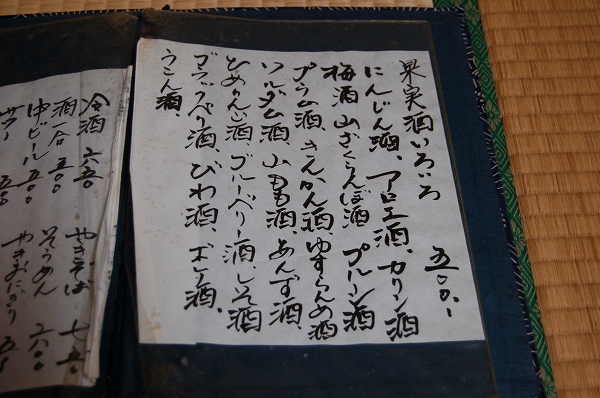 果実酒いろいろ 五〇〇.-
にんじん酒、アロエ酒、カリン酒
梅酒 山ざくらんぼ酒 プルーン酒
プラム酒、きんかん酒、ゆすらんめ酒
ソルダム酒、山もも酒、あんず酒、
ひめりんご酒、ブルーベリー酒、しそ酒
ブラックベリー酒、びわ酒、ボケ酒、
うこん酒、
冷酒 六五〇
酒一合 五〇〇
中ビール 五〇〇
サワー 五〇
やきそば 七五〇
そうめん 六〇〇
やきおにぎり 五